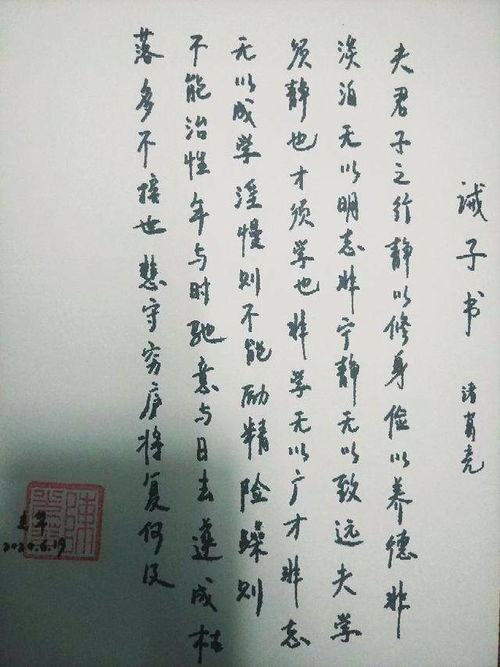 诫子书 诸葛亮
夫君子之行静以修身俭以养德非
淡泊无以明志非宁静无以致远夫学
须静也才须学也非学无以广才非志
无以成学淫慢则不能励精险躁则
不能治性年与时驰意与日去遂成枯
落多不接世悲守穷庐将复何及
2020.6.19